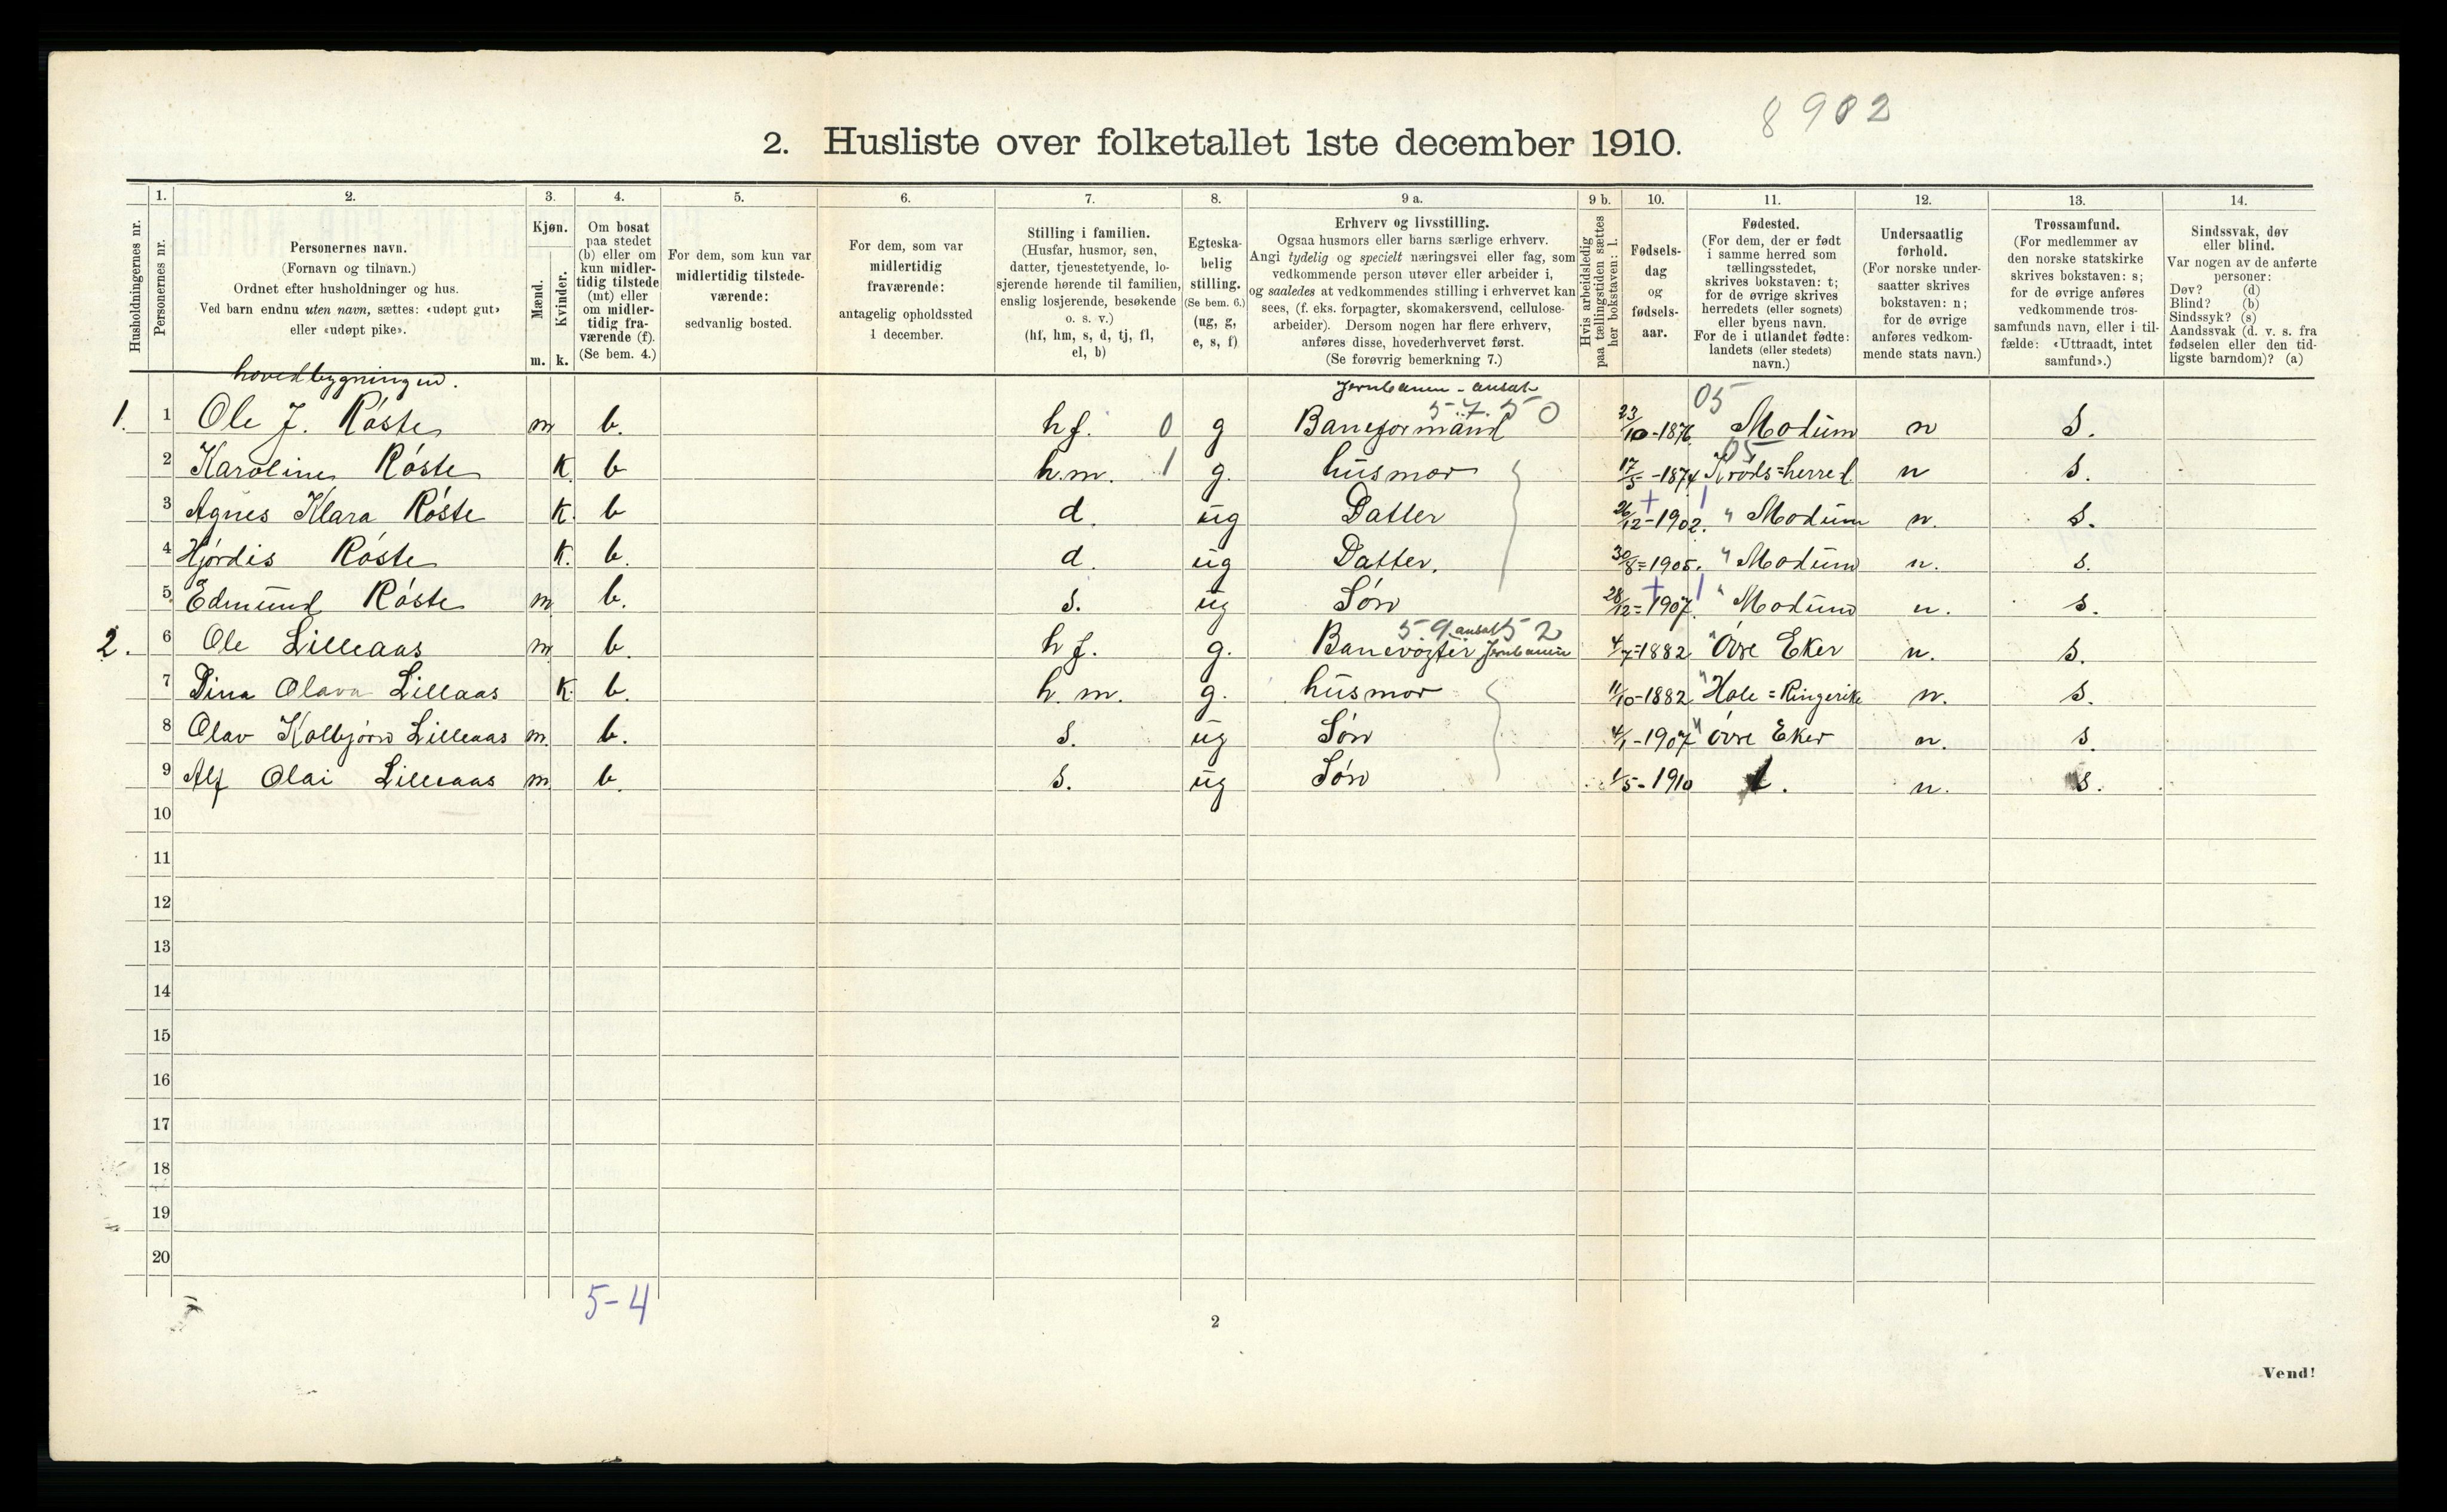 8902
2. Husliste over folketallet 1ste december 1910.
Husholdningernes nr.
1.
Personernes nr.
2.
Personernes navn.
(Fornavn og tilnavn.)
Ordnet efter husholdninger og hus.
Ved barn endnu uten navn, sættes: «udøpt gut»
eller «udøpt pike».
3.
Kjøn.
Mænd.
Kvinder.
m. k.
4.
Om bosat
paa stedet
(b) eller om
kun midler-
tidig tilstede
(mt) eller
om midler-
tidig fra-
værende (f).
(Se bem. 4.)
5.
For dem, som kun var
midlertidig tilstede-
værende:
sedvanlig bosted.
6.
For dem, som var
midlertidig
fraværende:
antagelig opholdssted
1 december.
7.
Stilling i familien.
(Husfar, husmor, søn,
datter, tjenestetyende, lo-
sjerende hørende til familien,
enslig losjerende, besøkende
o. s. v.)
(hf, hm, s, d, tj, fl,
el, b)
8.
Egteska-
belig
stilling.
(Se bem. 6.)
(ug, g,
e, s, f)
9 a.
Erhverv og livsstilling.
Ogsaa husmors eller barns særlige erhverv.
Angi tydelig og specielt næringsvei eller fag, som
vedkommende person utøver eller arbeider i,
og saaledes at vedkommendes stilling i erhvervet kan
sees, (f. eks. forpagter, skomakersvend, cellulose-
arbeider). Dersom nogen har flere erhverv,
anføres disse, hovederhvervet først.
(Se forøvrig bemerkning 7.)
9 b.
Hvis arbeidsledig
paa tællingstiden sættes
her bokstaven: l.
10.
Fødsels-
dag
og
fødsels-
aar.
11.
Fødested.
(For dem, der er født
i samme herred som
tællingsstedet,
skrives bokstaven: t;
for de øvrige skrives
herredets (eller sognets)
eller byens navn.
For de i utlandet fødte:
landets (eller stedets)
navn.)
12.
Undersaatlig
forhold.
(For norske under-
saatter skrives
bokstaven: n;
for de øvrige
anføres vedkom-
mende stats navn.)
13.
Trossamfund.
(For medlemmer av
den norske statskirke
skrives bokstaven: s;
for de øvrige anføres
vedkommende tros-
samfunds navn, eller i til-
fælde: «Uttraadt, intet
samfund».)
14.
Sindssvak, døv
eller blind.
Var nogen av de anførte
personer:
Døv? (d)
Blind? (b)
Sindssyk? (s)
Aandssvak (d. v. s. fra
fødselen eller den tid-
ligste barndom)? (a)
hovedbygningen.
Jernbanen - ansat
57.50 05
1. 1 Ole J. Røste m b. hf. 0 g Baneformand 23/10-1876 Modum n s.
05
2 Karoline Røste K b h.m. 1 g. husmor 17/5-1874 Krøds=herred n s.
3 Agnes Klara Røste K. b d. ug Datter 26/12-1902. " Modum n. s.
4 Hjørdis Røste K. b. d. ug Datter. 30/8=1905. " Modum n. s.
5 Edmund Røste m b. s. ug Søn 28/12=1907. " Modum n. s.
59. ansat 52
2. 6 Ole Lilleaas m b. hf. g. Banevogter Jernbanen 4/7=1882 " Øvre Eker n. s.
7 Dina Olava Lilleaas K. b. h.m. g. husmor 11/10-1882 " Hole = Ringerike n. s.
8 Olav Kolbjørn Lilleaas m. b. s. ug Søn 4/1-1907 " Øvre Eker n. s.
9 Alf Olai Lilleaas m. b. s. ug Søn 1/5-1910 t. n. s.
10
11
12
13
14
15
16
17
18
19
20
5-4
2
Vend!